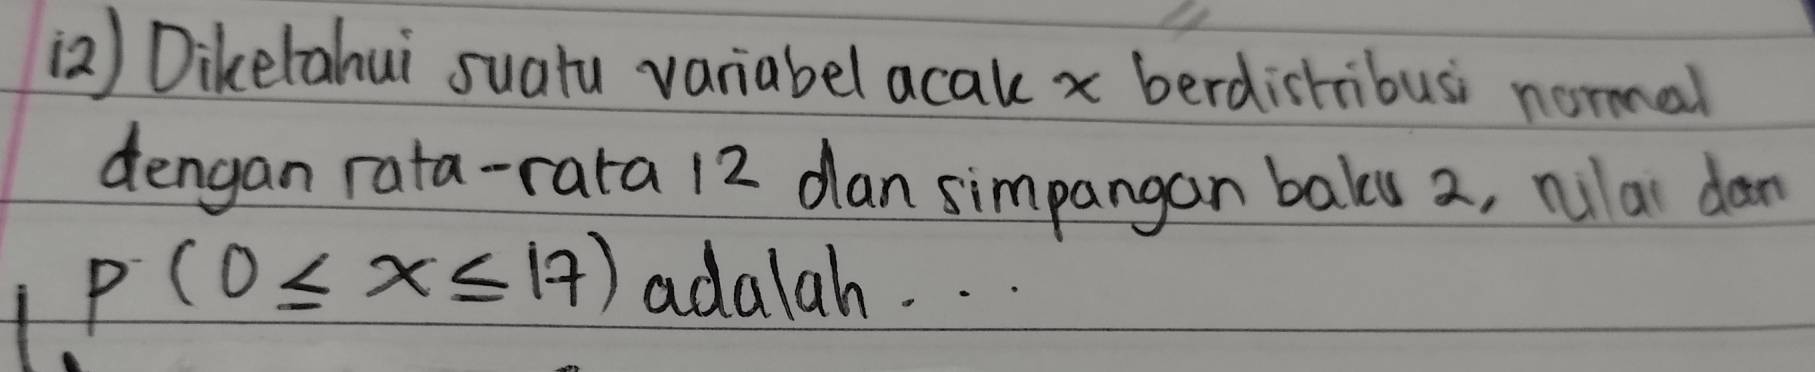 12) Diketahui suatu variabel acak x berdistribusi normal
dengan rata-rata 12 dan simpangan baku 2, nilai dan
P (0 ≤ x ≤ 17) adalah . . .